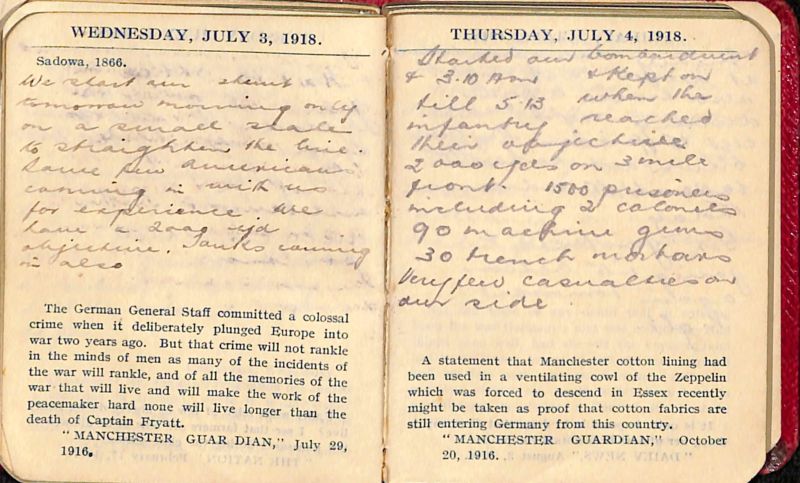 WEDNESDAY, JULY 3, 1918.
Sadowa, 1866.
We start our stunt
tomorrow morning only
on a small scale
to straighten the line.
Some few Americans
coming in with us
for experience We
have a 2000 yd
objective. Tanks coming
in also
The German General Staff committed a colossal
crime when it deliberately plunged Europe into
war two years ago. But that crime will not rankle
in the minds of men as many of the incidents of
the war will rankle, and of all the memories of the
war that will live and will make the work of the
peacemaker hard none will live longer than the
death of Captain Fryatt.
"MANCHESTER GUAR DIAN," July 29,
1916.
THURSDAY, JULY 4, 1918.
Started our bombardment
& 3.10 Am & Kept on
till 5.15 when the
infantry reached
their objective
2000 yds on 3 mile
front. 1500 prisoners
including 2 colonels
90 machine guns
30 trench mortars
Very few casualties on
our side.
A statement that Manchester cotton lining had
been used in a ventilating cowl of the Zeppelin
which was forced to descend in Essex recently
might be taken as proof that cotton fabrics are
still entering Germany from this country.
"MANCHESTER GUARDIAN," October
20, 1916.